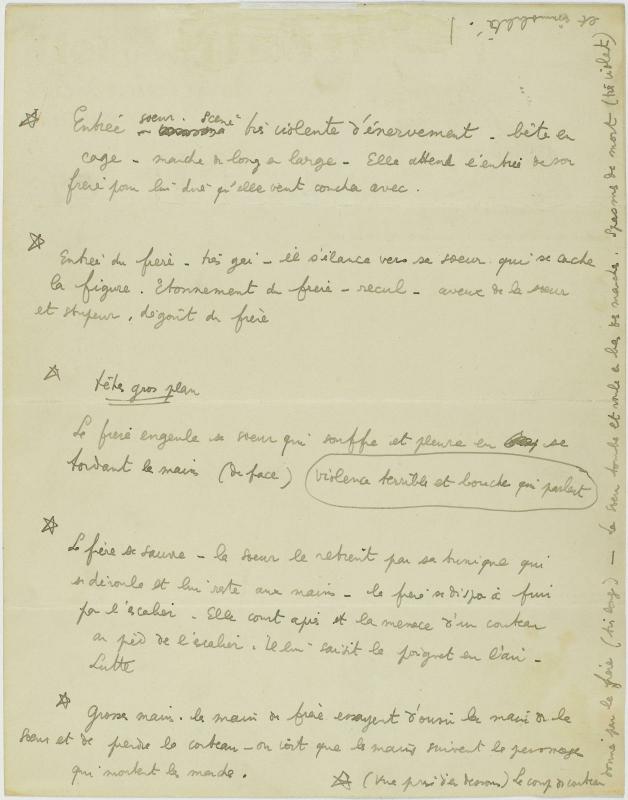 ☆ Entrée soeur. Scène très violente d'énervement - bête en
cage - marche de long en large - Elle attend l'entrée de son
frère pour lui dire qu'elle veut coucher avec.
☆ Entrée du frère - très gai - il s'élance vers sa soeur qui se cache
la figure. Etonnement du frère - recul - aveux de la soeur
et stupeur, dégoût du frère
☆ têtes gros plan
Le frère engeule sa soeur qui souffre et pleure en se
tordant les mains (de face) violence terrible et bouches qui parlent
☆ Le frère se sauve - la soeur le retient par sa tunique qui
se déroule et lui reste aux mains - le frère se dispose à fuir
par l'escalier. Elle court après et la menace d'un couteau
au pied de l'escalier. Il lui saisit le poignet en l'air -
Lutte
☆ Grosses mains. les mains du frère essayent d'ouvrir les mains de la
soeur et de prendre le couteau - on voit que les mains suivent les personnages
qui montent les marches.
☆ (vue prise d'en dessous) Le coup de couteau
donné par le frère (très long) - la soeur tombe et roule en bas des marches. Spasmes de mort (très violent)
et immobilité.